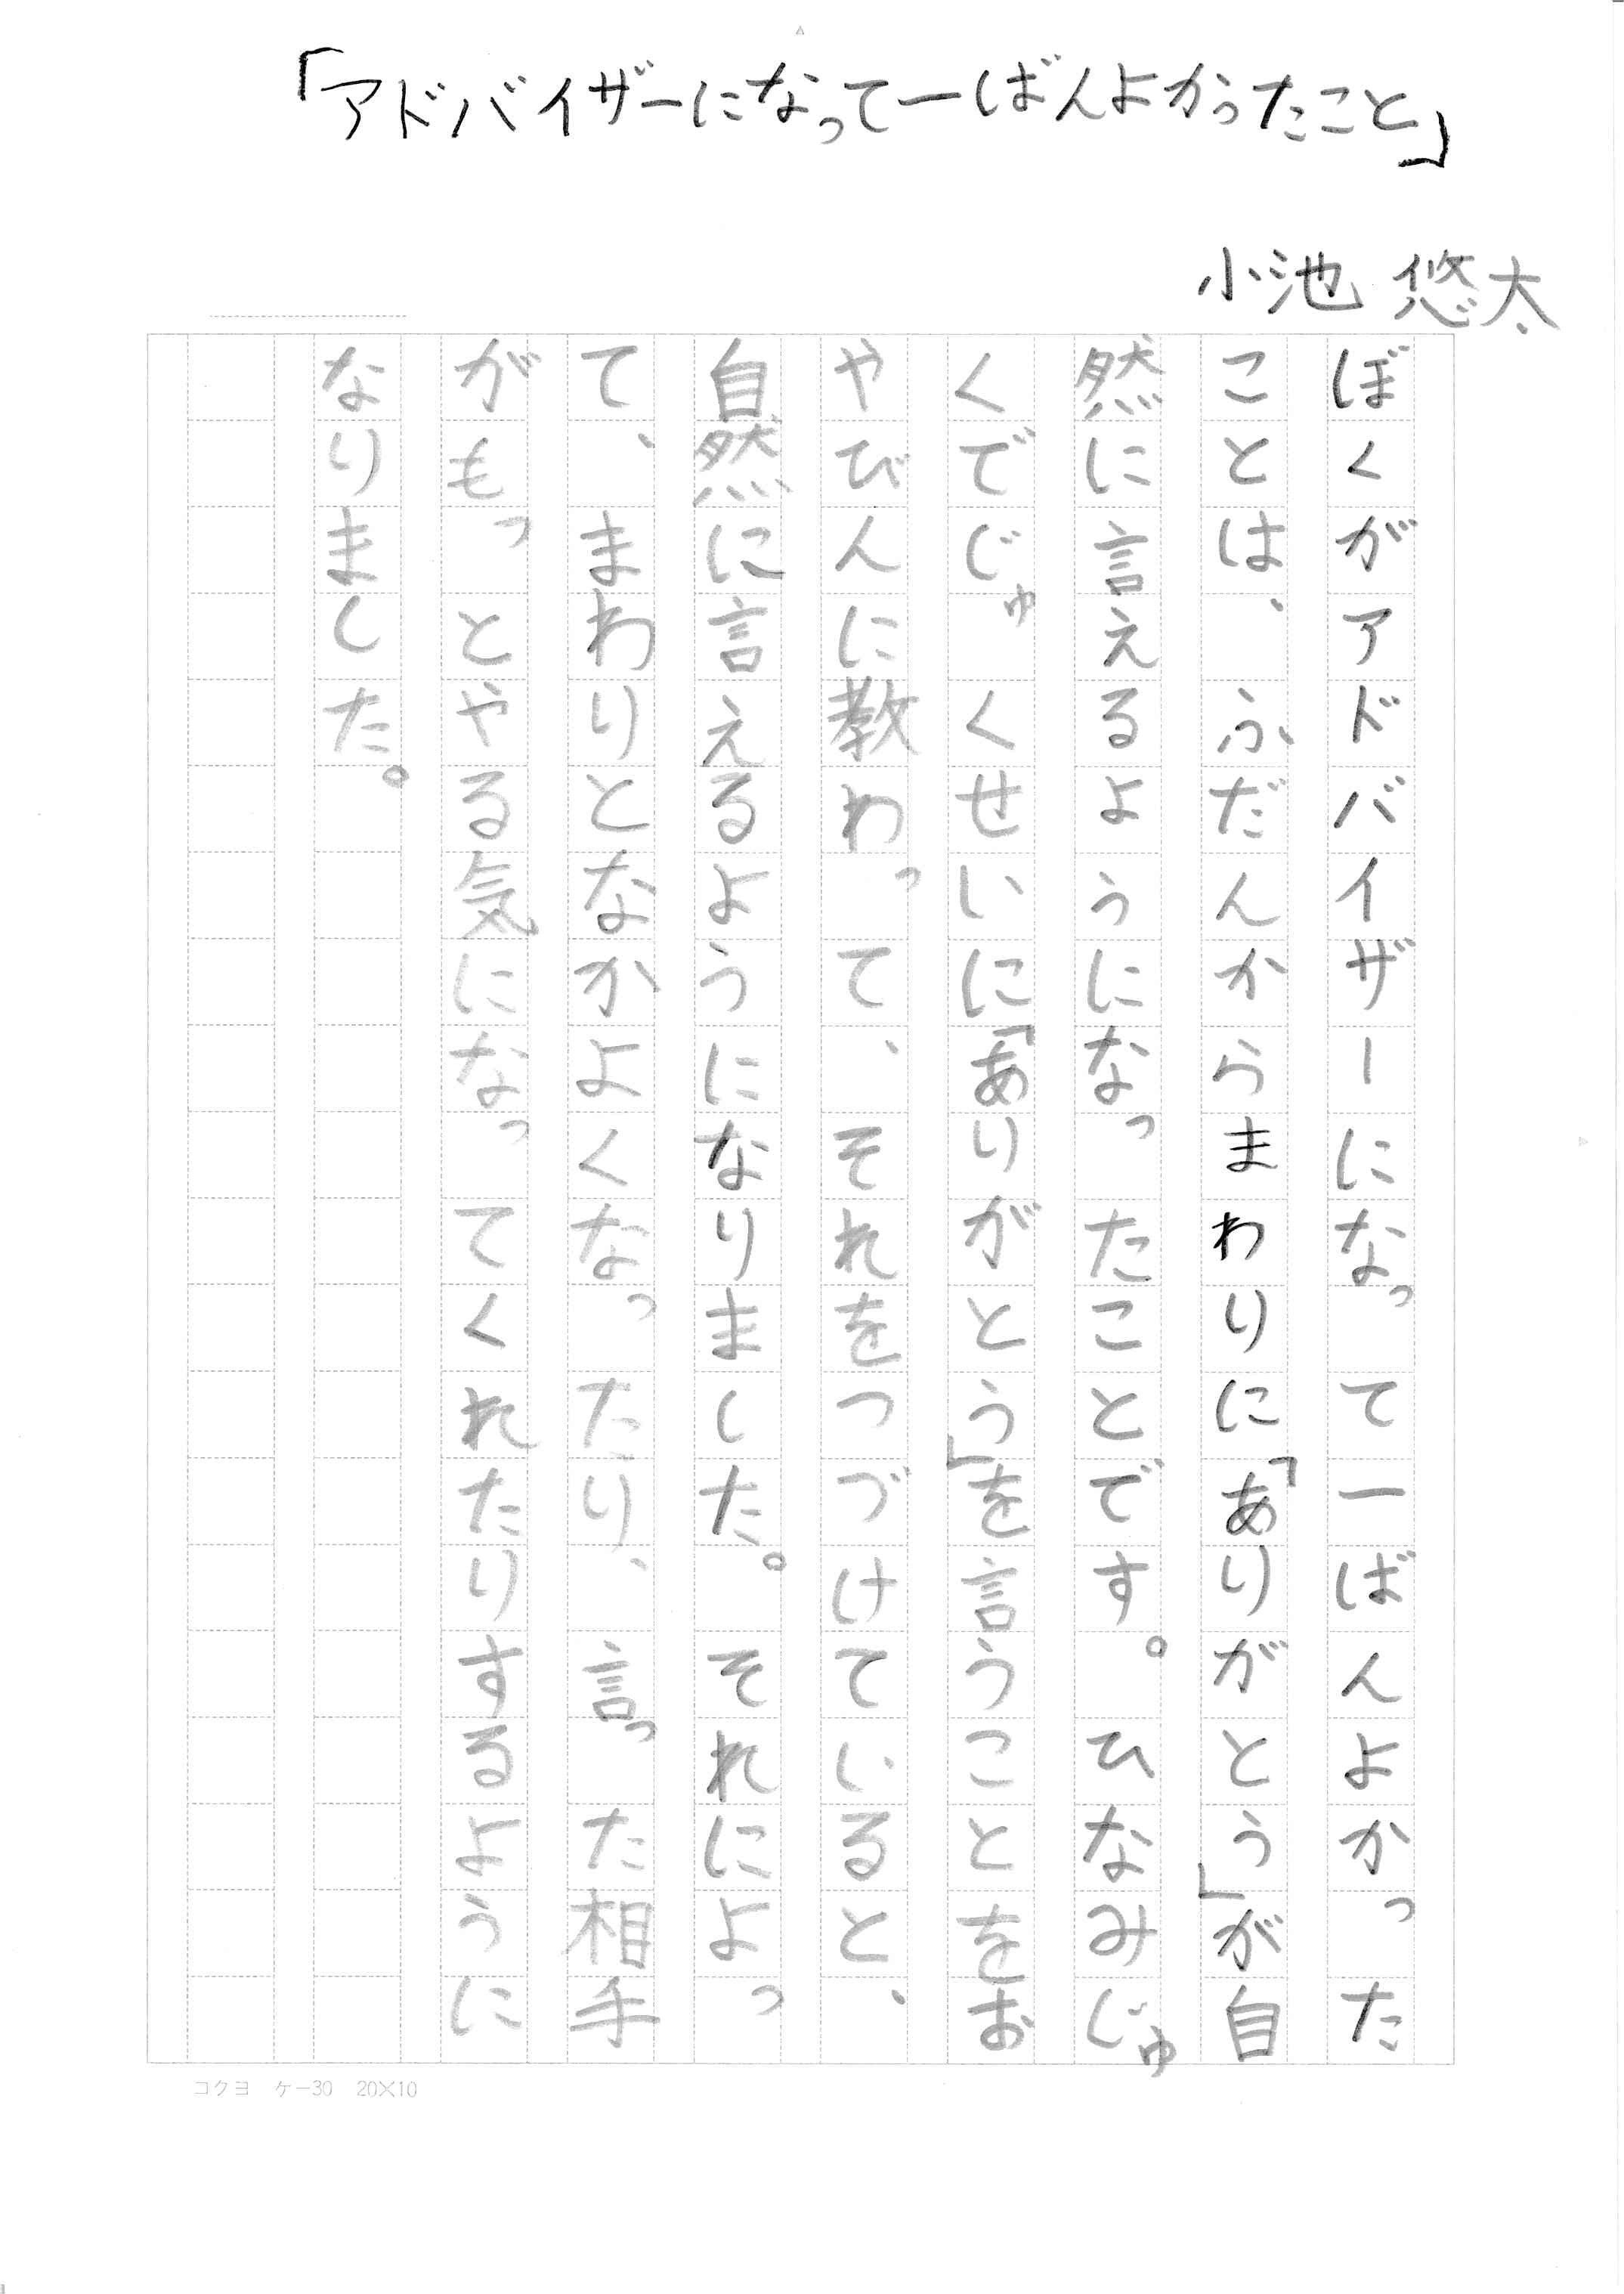 「アドバイザーになって一ばんよかったこと」
小池 悠太
ぼくがアドバイザーになって一ばんよかった
ことは、ふだんからまわりに「ありがとう」が自
然に言えるようになったことです。ひなみじゅ
くでじゅくせいに「ありがとう」を言うことをお
やびんに教わって、それをつづけていると、
自然に言えるようになりました。それによっ
て、まわりとなかよくなったり、言った相手
がもっとやる気になってくれたりするように
なりました。
コクヨ ケー30 20×10